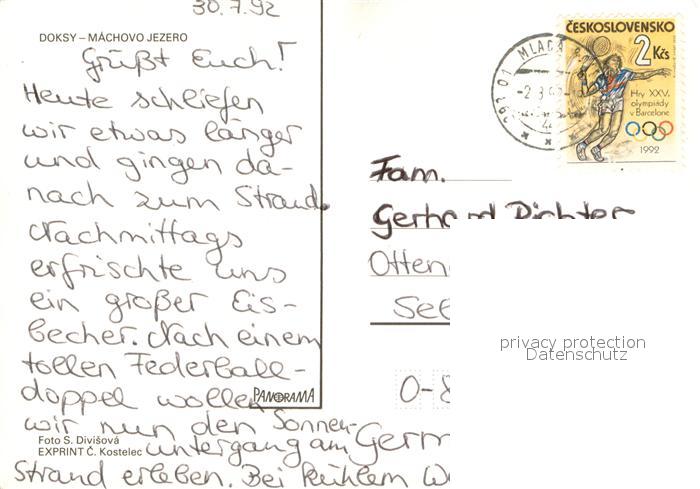 30.7.92
DOKSY – MÁCHOVO JEZERO
Grüßt Euch!
Heute schliefen
wir etwas länger
und gingen da-
nach zum Strand.
Nachmittags
erfrischte uns
ein großer Eis-
becher. Nach einem
tollen Federball-
doppel wollen
wir nun den Sonnen-
untergang am
Strand erleben. Bei kühlem
PANORAMA
Foto S. Divišová
EXPRINT Č. Kostelec
ČESKOSLOVENSKO
2 Kčs
Hry XXV.
olympiády
v Barceloně
1992
MLADÁ
Fam.
Gerhard Richter
Otten
See
O-8
Germ
privacy protection
Datenschutz